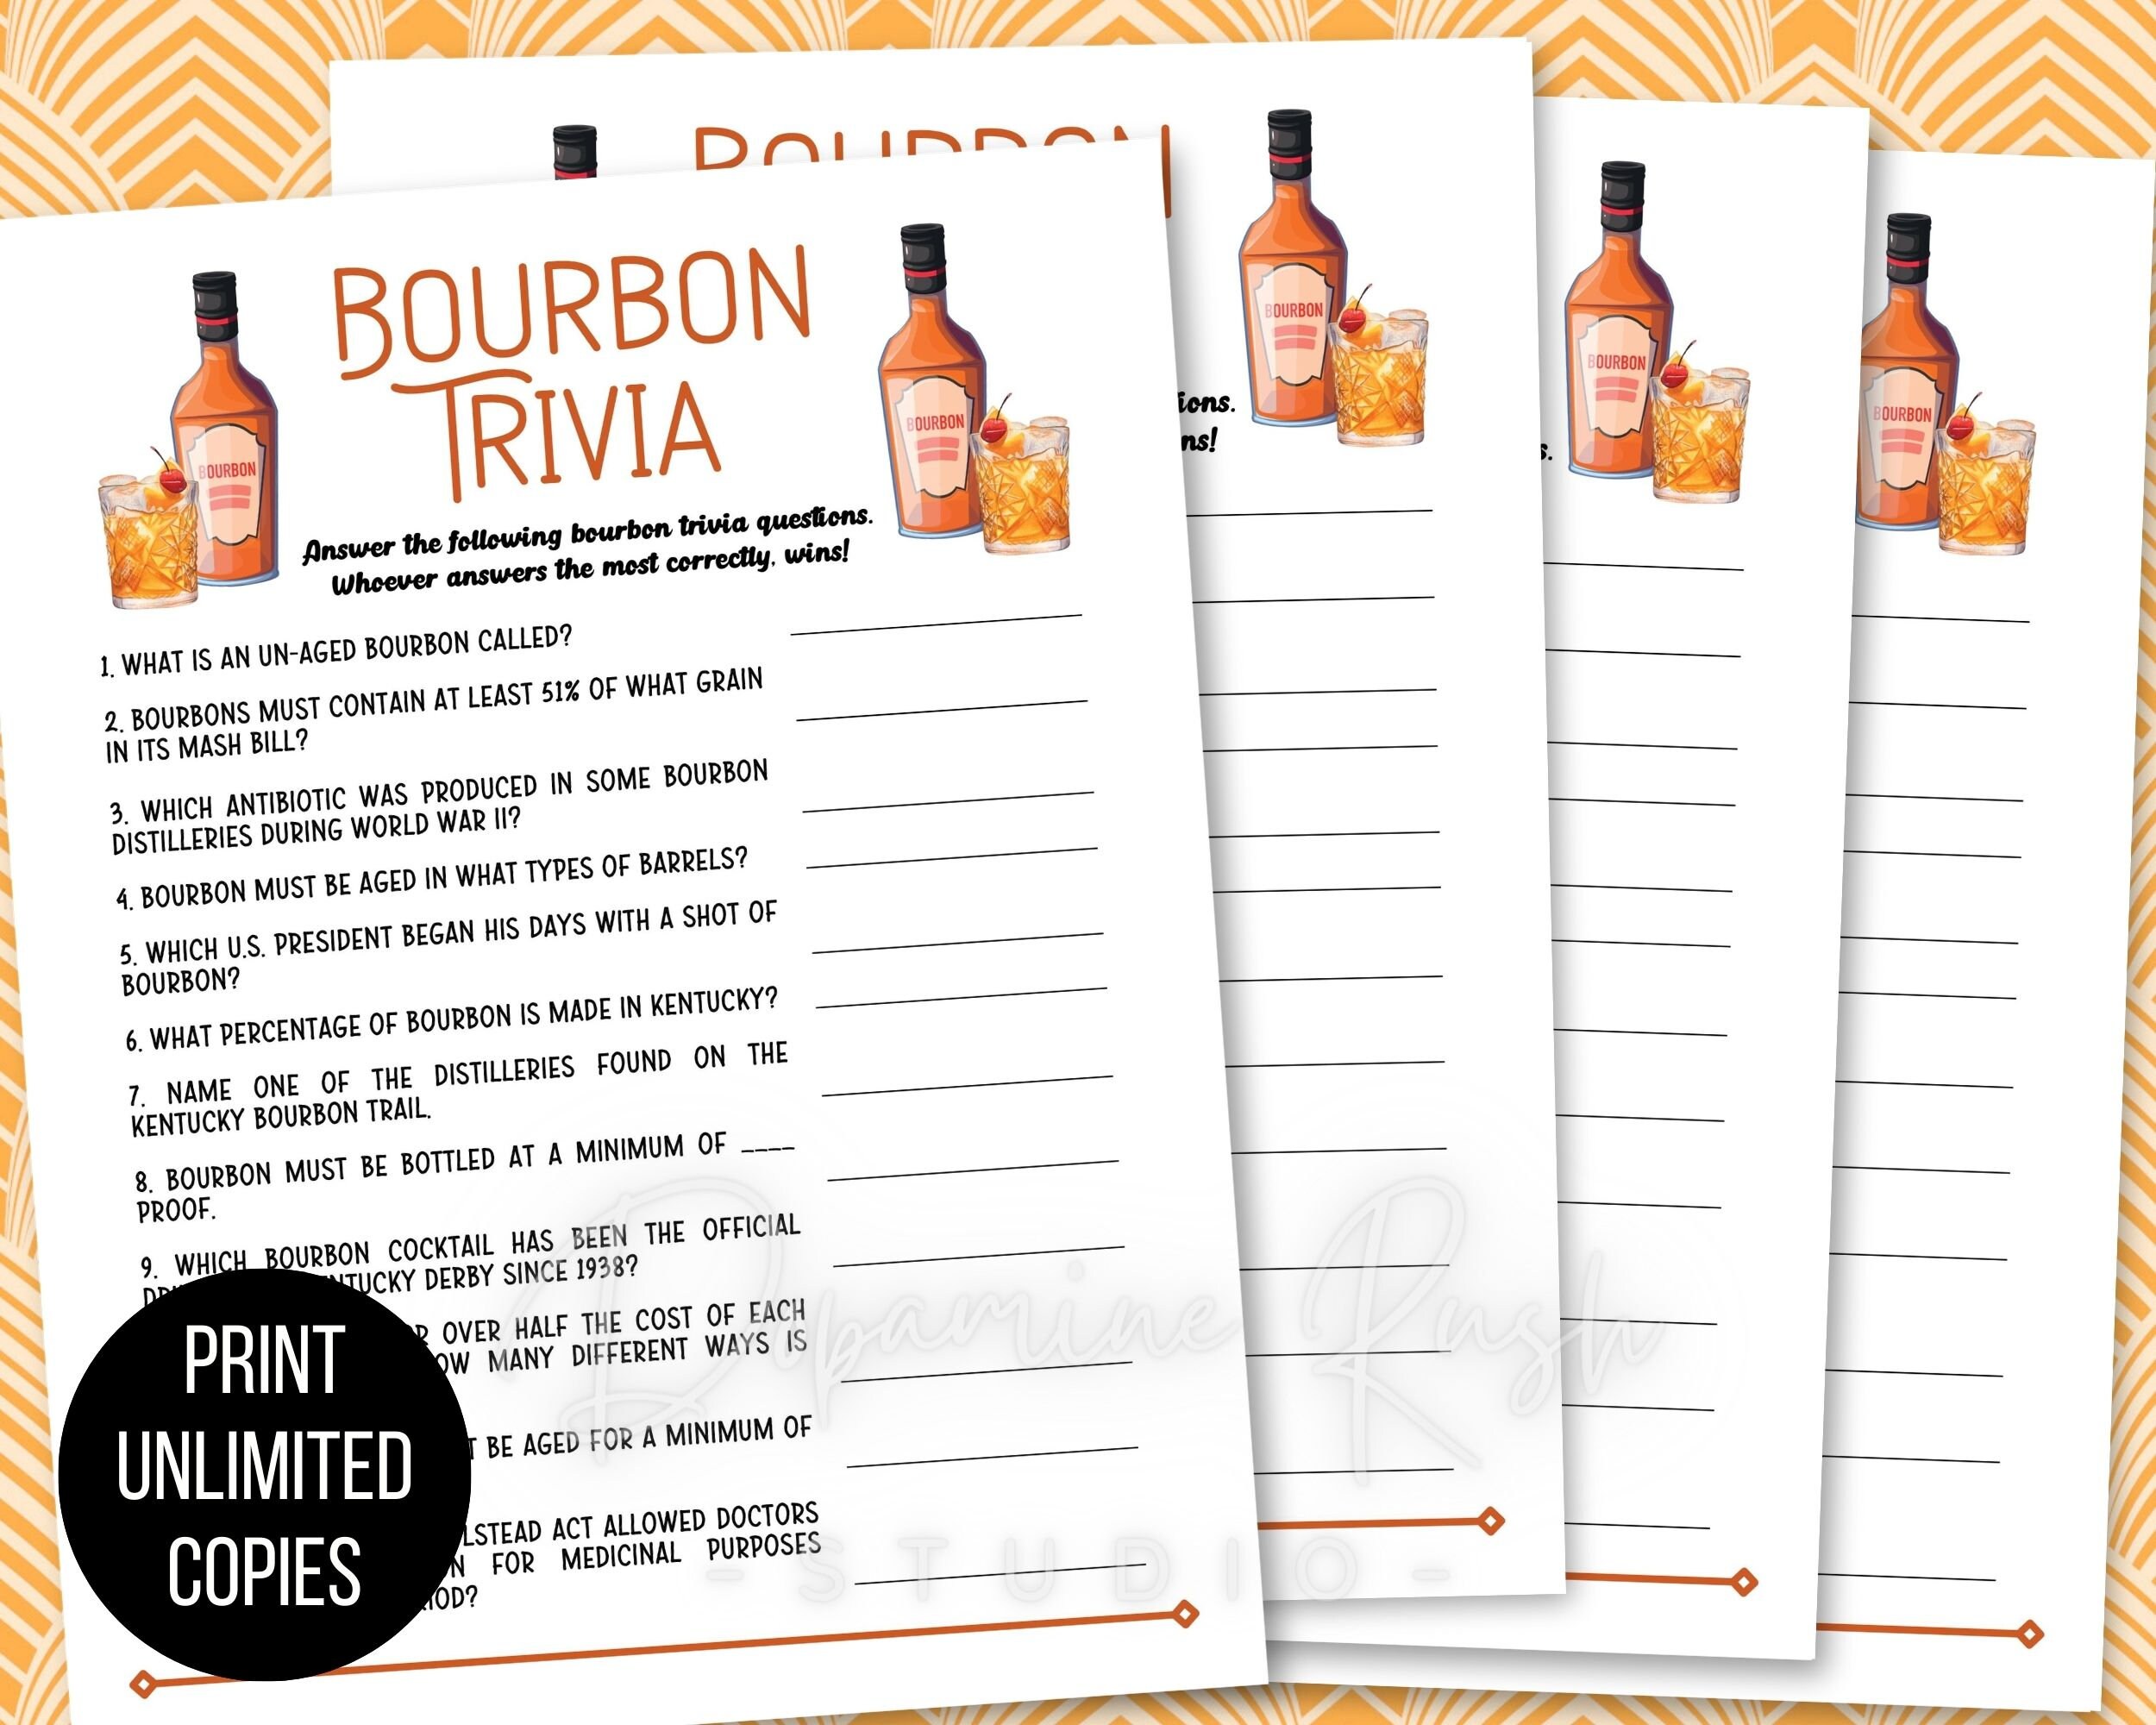 BOURBON
BOURBON
TRIVIA
Answer the following bourbon trivia questions.
Whoever answers the most correctly, wins!
BOURBON
BOURBON
BOURBON
BOURBON
BOURBON
ions.
ns!
s.
1. WHAT IS AN UN-AGED BOURBON CALLED?
2. BOURBONS MUST CONTAIN AT LEAST 51% OF WHAT GRAIN
IN ITS MASH BILL?
3. WHICH ANTIBIOTIC WAS PRODUCED IN SOME BOURBON
DISTILLERIES DURING WORLD WAR II?
4. BOURBON MUST BE AGED IN WHAT TYPES OF BARRELS?
5. WHICH U.S. PRESIDENT BEGAN HIS DAYS WITH A SHOT OF
BOURBON?
6. WHAT PERCENTAGE OF BOURBON IS MADE IN KENTUCKY?
7. NAME ONE OF THE DISTILLERIES FOUND ON THE
KENTUCKY BOURBON TRAIL.
8. BOURBON MUST BE BOTTLED AT A MINIMUM OF ____
PROOF.
9. WHICH BOURBON COCKTAIL HAS BEEN THE OFFICIAL
NTUCKY DERBY SINCE 1938?
OVER HALF THE COST OF EACH
OW MANY DIFFERENT WAYS IS
T BE AGED FOR A MINIMUM OF
LSTEAD ACT ALLOWED DOCTORS
N FOR MEDICINAL PURPOSES
IOD?
PRINT
UNLIMITED
COPIES
Dopamine Rush
- STUDIO -